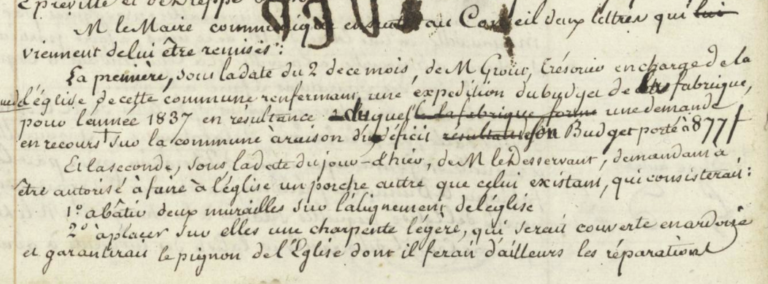 Epreville et de Dieppe
M le Maire communique ensuite au Conseil deux lettres qui lui
viennent de lui être remises :
La première, sous la date du 2 de ce mois, de M Grout, trésorier en charge de la
de l'église, de cette commune renfermant une expédition du budget de la fabrique,
pour l'année 1837 en resultance de laquelle la fabrique forme une demande
en recours sur la commune à raison du déficit résultant de son Budget porté à 877f
Et la seconde, sous la date du jour-d'hier, de M le Desservant, demandant à
être autorisé à faire à l'église un porche autre que celui existant, qui consisterait :
1° a bâtir deux murailles sur l'alignement de l'église
2° à placer sur elles une charpente légère, qui serait couverte en ardoise
et garantirait le pignon de l'Eglise dont il ferait d'ailleurs les réparations